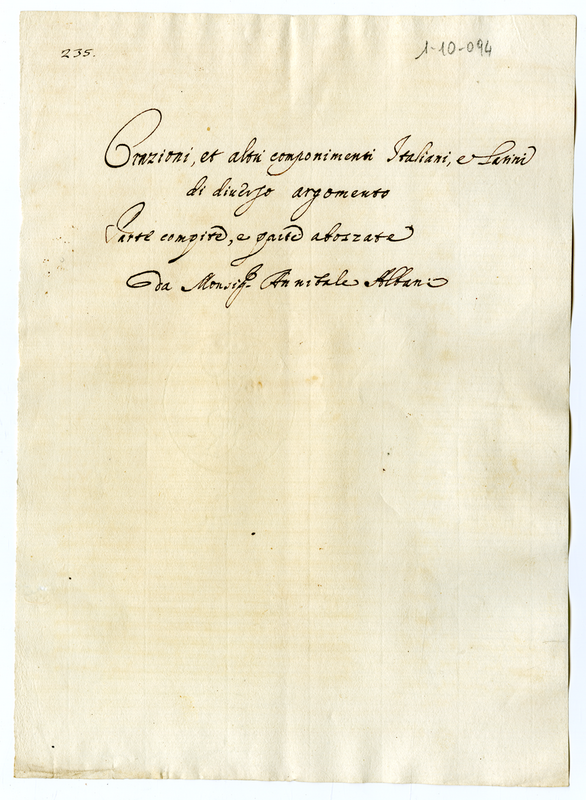 235.
1-10-094
Orazioni, et altri componimenti Italiani, e Latini
di diverso argomento
Parte compite, e parte abozzate
da Monsig.r Annibale Albani